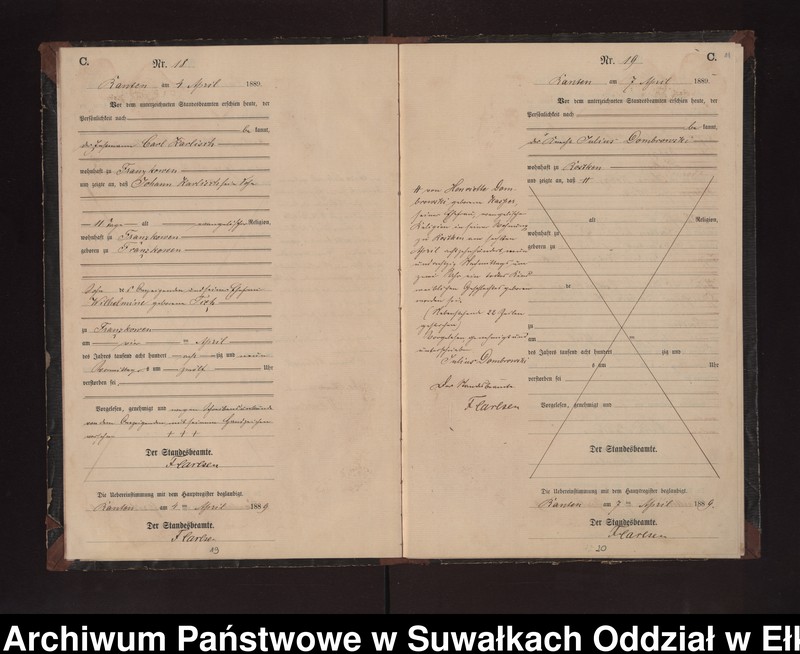 C.
Nr. 18
Kanten am 4 April 1889.
Vor dem unterzeichneten Standesbeamten erschien heute, der
Persönlichkeit nach
be kannt,
der Carl
wohnhaft zu Franzkowen
und zeigte an, daß Johann
11 Tage alt evangelischer Religion,
wohnhaft zu Franzkowen
geboren zu Franzkowen
Sohn des
Wilhelmine geborene
zu Franzkowen
am vier ten April
des Jahres tausend acht hundert acht zig und neun
Vormittags um zwölf Uhr
verstorben sei,
Vorgelesen, genehmigt und wegen Schreibensunkunde
von dem Anzeigenden mit seinem Handzeichen
versehen + + +
Der Standesbeamte.
F Carlsen
Die Uebereinstimmung mit dem Hauptregister beglaubigt.
Kanten am 4 ten April 1889
Der Standesbeamte.
F Carlsen
19
Nr. 19
C.
Kanten am 7 April 1889.
Vor dem unterzeichneten Standesbeamten erschien heute, der
Persönlichkeit nach
be kannt,
der Julius Dombrowski
wohnhaft zu Rostken
und zeigte an, daß
alt Religion,
wohnhaft zu
geboren zu
zu
am ten
des Jahres tausend acht hundert zig und
um Uhr
verstorben sei
Vorgelesen, genehmigt und
Der Standesbeamte.
von Henriette Dom-
browski geborene Kasper,
seiner Ehefrau, evangelischer
Religion in seiner Wohnung
zu Rostken am sechsten
April achtzehnhundert neun
und achtzig Nachmittags um
zwei Uhr ein todtes Kind
weiblichen Geschlechts geboren
worden sei.
(Nebenstehend 22 Zeilen
gestrichen)
Vorgelesen genehmigt und
unterschrieben
Julius Dombrowski
Der Standesbeamte
F Carlsen
Die Uebereinstimmung mit dem Hauptregister beglaubigt.
Kanten am 7 ten April 1889.
Der Standesbeamte.
F Carlsen
20
Archiwum Państwowe w Suwałkach Oddział w Ełk